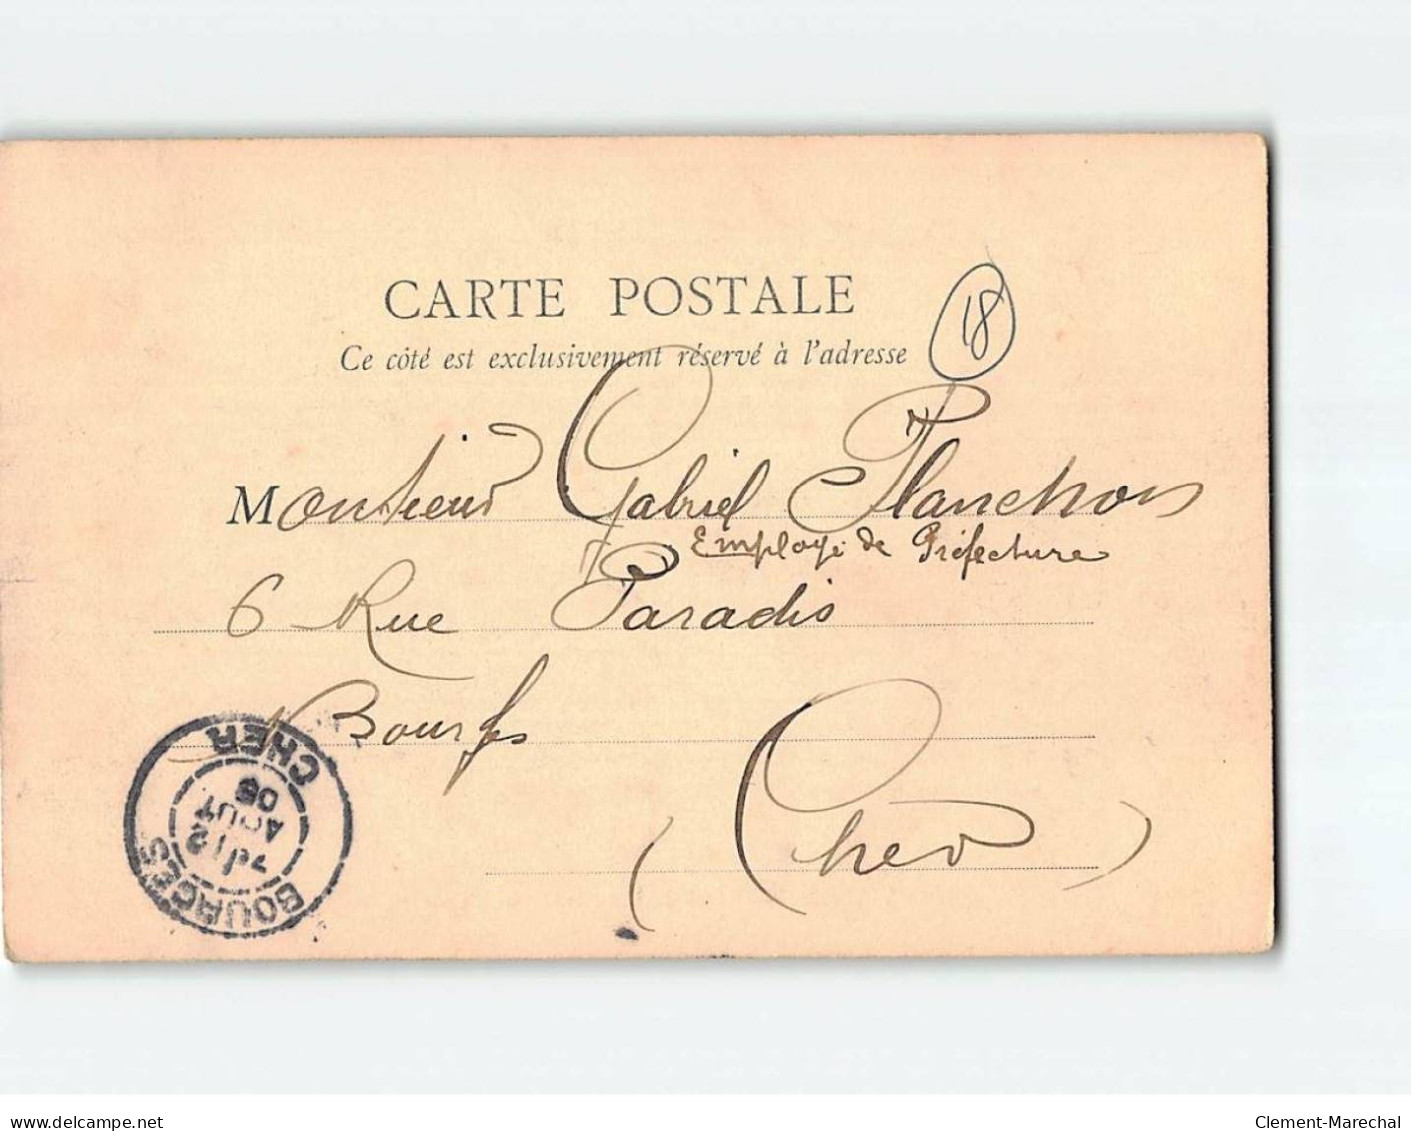 CARTE POSTALE
18
Ce côté est exclusivement réservé à l'adresse
Monsieur Gabriel Planchon
Employé de Préfecture
6 Rue Paradis
Bourges
(Cher)
BOURGES
CHER
12
AOUT
05
delcampe.net
Clement-Marechal